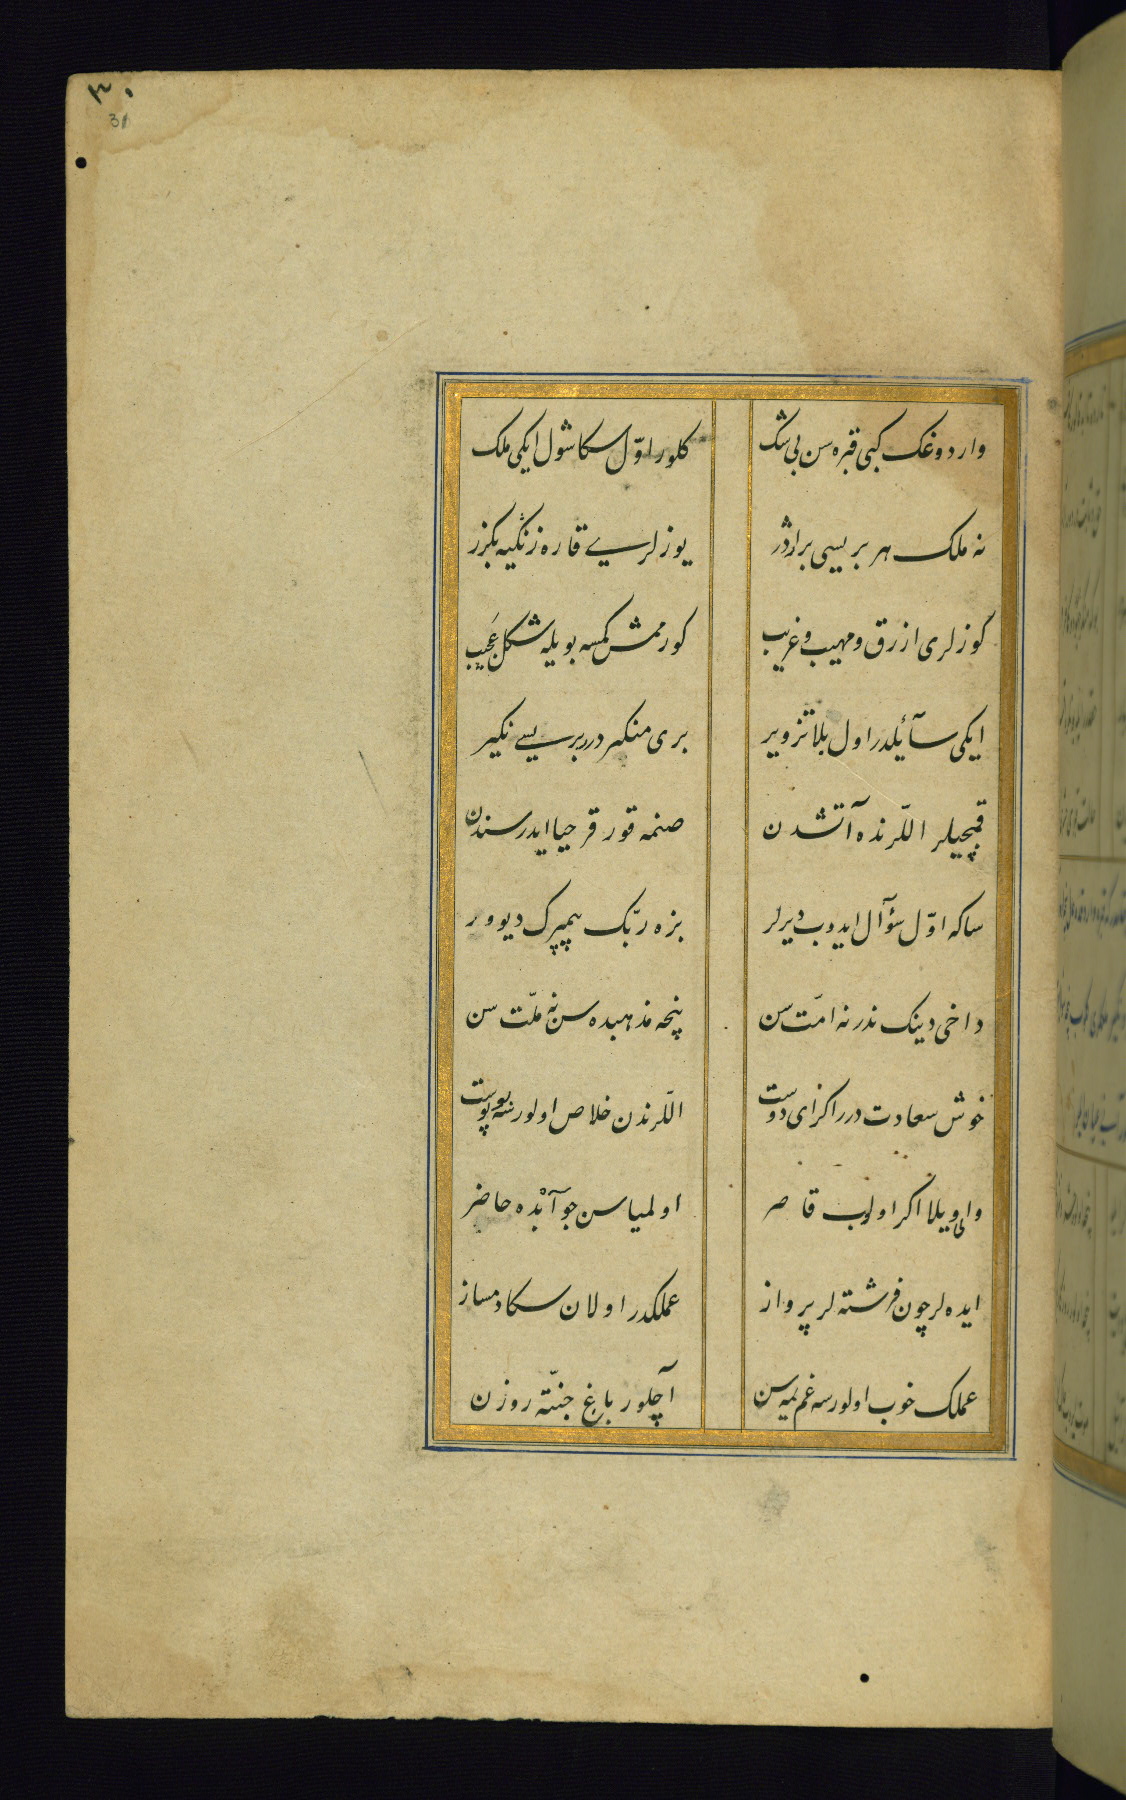 ٣٠
31
واردوغك كبی قبره سن بی شك كلور اوّل سكا شول ایكی ملك
نه ملك هر بریسی بر اژدر یوزلری قاره زنكیه بكزر
كوزلری ازرق و مهیب و غریب كورممش كمسه بویله شكل عَجیب
ایكی سآئلدر اول بلا تزویر بری منكر در بریسی نكیر
قمچیلر اللّرنده آتشدن صنمه قورقر حیا ایدر سندن
ساكه اوّل سؤآل ایدوب دیرلر بزه ربّك پیمبرك دیو ور
داخی دینك ندر نه امّت سن نیجه مذهبده سن نه ملّت سن
خوش سعادت در اكر ای دوست اللّرندن خلاص اولورسه پوست
وای ویلا اكر اولوب قاصر اولمیاسن جوآبْده حاضر
ایده لر چون فرشته لر پرواز عملكدر اولان سكا دمساز
عملك خوب اولورسه غم یمه سن آچلور باغ جنّته روزن